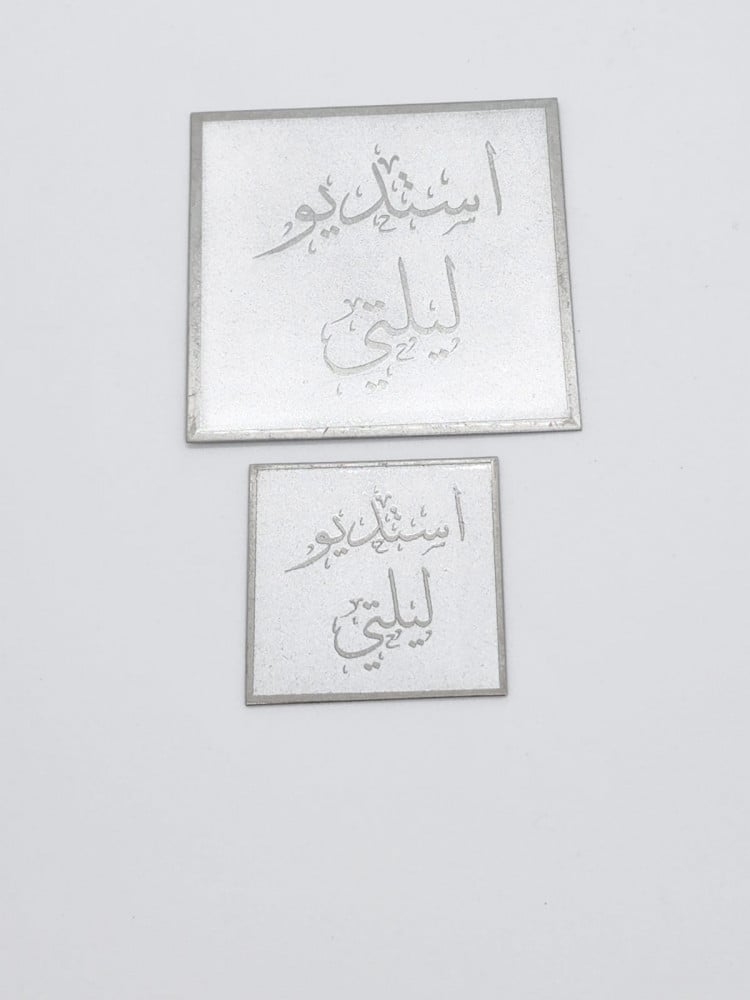 استديو
ليلتي
استديو
ليلتي